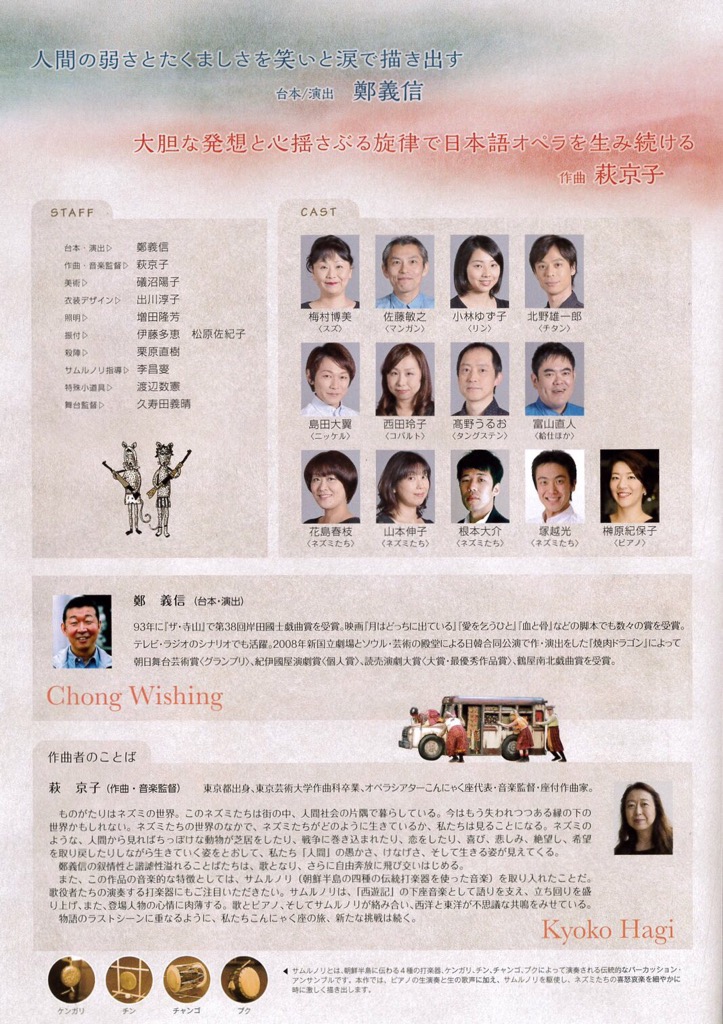 人間の弱さとたくましさを笑いと涙で描き出す
台本/演出 鄭義信
大胆な発想と心揺さぶる旋律で日本語オペラを生み続ける
作曲 萩京子
STAFF
台本・演出▷ 鄭義信
作曲・音楽監督▷ 萩京子
美術▷ 礒沼陽子
衣装デザイン▷ 出川淳子
照明▷ 増田隆芳
振付▷ 伊藤多恵 松原佐紀子
殺陣▷ 栗原直樹
サムルノリ指導▷ 李昌燮
特殊小道具▷ 渡辺数憲
舞台監督▷ 久寿田義晴
CAST
梅村博美 佐藤敏之 小林ゆず子 北野雄一郎
〈スズ〉 〈マンガン〉 〈リン〉 〈チタン〉
島田大翼 西田玲子 髙野うるお 富山直人
〈ニッケル〉 〈コバルト〉 〈タングステン〉 〈給仕ほか〉
花島春枝 山本伸子 根本大介 塚越光 榊原紀保子
〈ネズミたち〉 〈ネズミたち〉 〈ネズミたち〉 〈ネズミたち〉 〈ピアノ〉
鄭 義信 (台本・演出)
93年に『ザ・寺山』で第38回岸田國士戯曲賞を受賞。映画『月はどっちに出ている』『愛を乞うひと』『血と骨』などの脚本でも数々の賞を受賞。
テレビ・ラジオのシナリオでも活躍。2008年新国立劇場とソウル・芸術の殿堂による日韓合同公演で作・演出をした『焼肉ドラゴン』によって
朝日舞台芸術賞〈グランプリ〉、紀伊國屋演劇賞〈個人賞〉、読売演劇大賞〈大賞・最優秀作品賞〉、鶴屋南北戯曲賞を受賞。
Chong Wishing
作曲者のことば
萩 京子 (作曲・音楽監督) 東京都出身、東京芸術大学作曲科卒業、オペラシアターこんにゃく座代表・音楽監督・座付作曲家。
ものがたりはネズミの世界。このネズミたちは街の中、人間社会の片隅で暮らしている。今はもう失われつつある縁の下の
世界かもしれない。ネズミたちの世界のなかで、ネズミたちがどのように生きているか、私たちは見ることになる。ネズミの
ような、人間から見ればちっぽけな動物が芝居をしたり、戦争に巻き込まれたり、恋をしたり、喜び、悲しみ、絶望し、希望
を取り戻したりしながら生きていく姿をとおして、私たち「人間」の愚かさ、けなげさ、そして生きる姿が見えてくる。
鄭義信の叙情性と諧謔性溢れることばたちは、歌となり、さらに自由奔放に飛び交いはじめる。
また、この作品の音楽的な特徴としては、サムルノリ（朝鮮半島の四種の伝統打楽器を使った音楽）を取り入れたことだ。
歌役者たちの演奏する打楽器にもご注目いただきたい。サムルノリは、『西遊記』の下座音楽として語りを支え、立ち回りを盛
り上げ、また、登場人物の心情に肉薄する。歌とピアノ、そしてサムルノリが絡み合い、西洋と東洋が不思議な共鳴をみせている。
物語のラストシーンに重なるように、私たちこんにゃく座の旅、新たな挑戦は続く。
Kyoko Hagi
ケンガリ チン チャンゴ ブク
◀ サムルノリとは、朝鮮半島に伝わる４種の打楽器、ケンガリ、チン、チャンゴ、ブクによって演奏される伝統的なパーカッション・
アンサンブルです。本作では、ピアノの生演奏と生の歌声に加え、サムルノリを駆使し、ネズミたちの喜怒哀楽を細やかに
時に激しく描き出します。